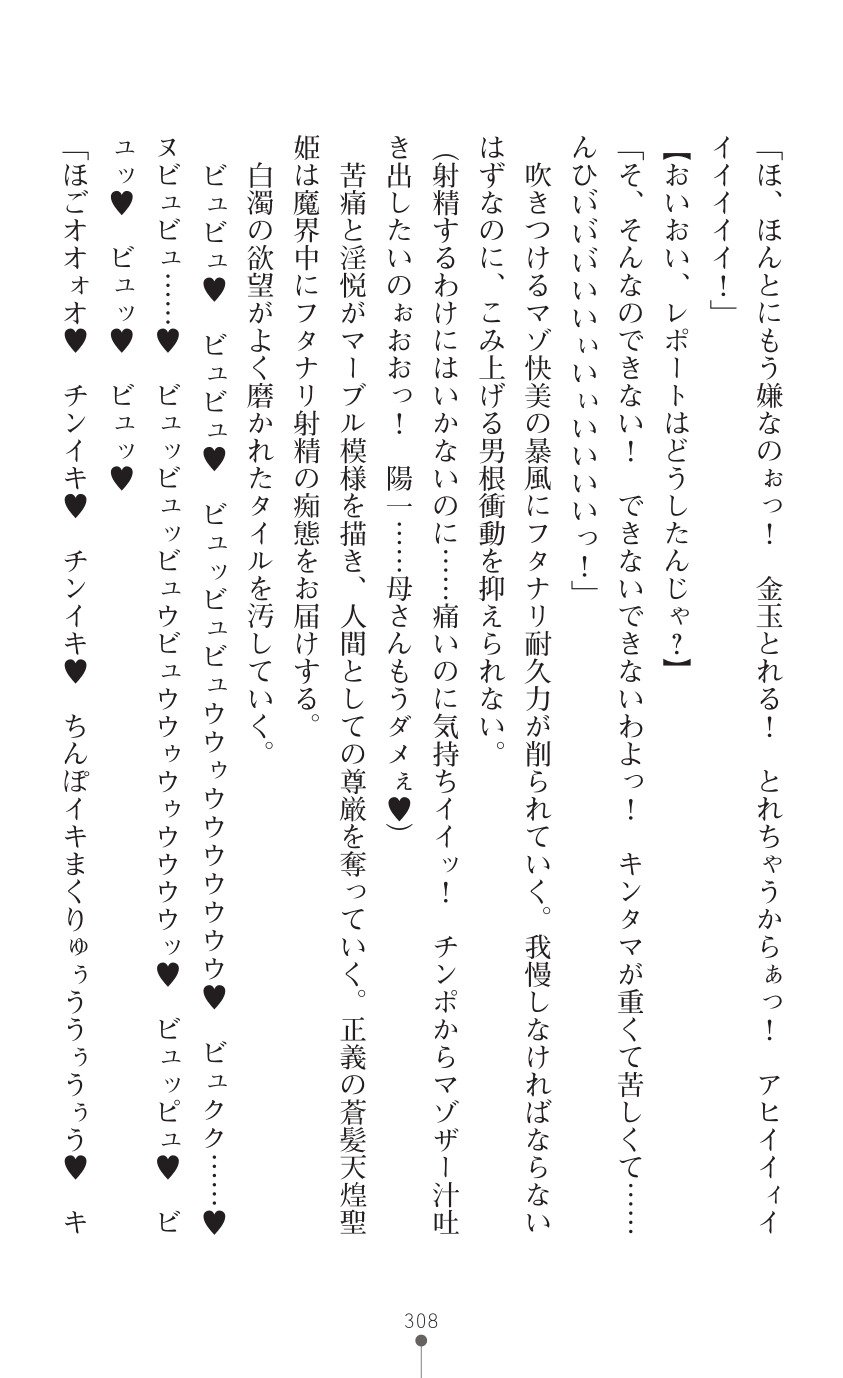 「ほ、ほんとにもう嫌なのぉっ！　金玉とれる！　とれちゃうからぁっ！　アヒイイィイ
イイイイイ！」
【おいおい、レポートはどうしたんじゃ？】
「そ、そんなのできない！　できないできないわよっ！　キンタマが重くて苦しくて……
んひいいいいいぃいぃいいいいっ！」
　吹きつけるマゾ快美の暴風にフタナリ耐久力が削られていく。我慢しなければならない
はずなのに、こみ上げる男根衝動を抑えられない。
（射精するわけにはいかないのに……痛いのに気持ちイイッ！　チンポからマゾザー汁吐
き出したいのぉおおっ！　陽一……母さんもうダメぇ♥）
　苦痛と淫悦がマーブル模様を描き、人間としての尊厳を奪っていく。正義の蒼髪天煌聖
姫は魔界中にフタナリ射精の痴態をお届けする。
　白濁の欲望がよく磨かれたタイルを汚していく。
　ビュビュ♥　ビュビュ♥　ビュッビュビュウウゥウウウウウウウ♥　ビュクク……♥
ヌビュビュ……♥　ビュッビュッビュウビュウウゥウゥウウウウッ♥　ビュッピュ♥　ビ
ュッ♥　ビュッ♥　ビュッ♥
「ほごオオォオ♥　チンイキ♥　チンイキ♥　ちんぽイキまくりゅぅううぅうぅう♥　キ
308